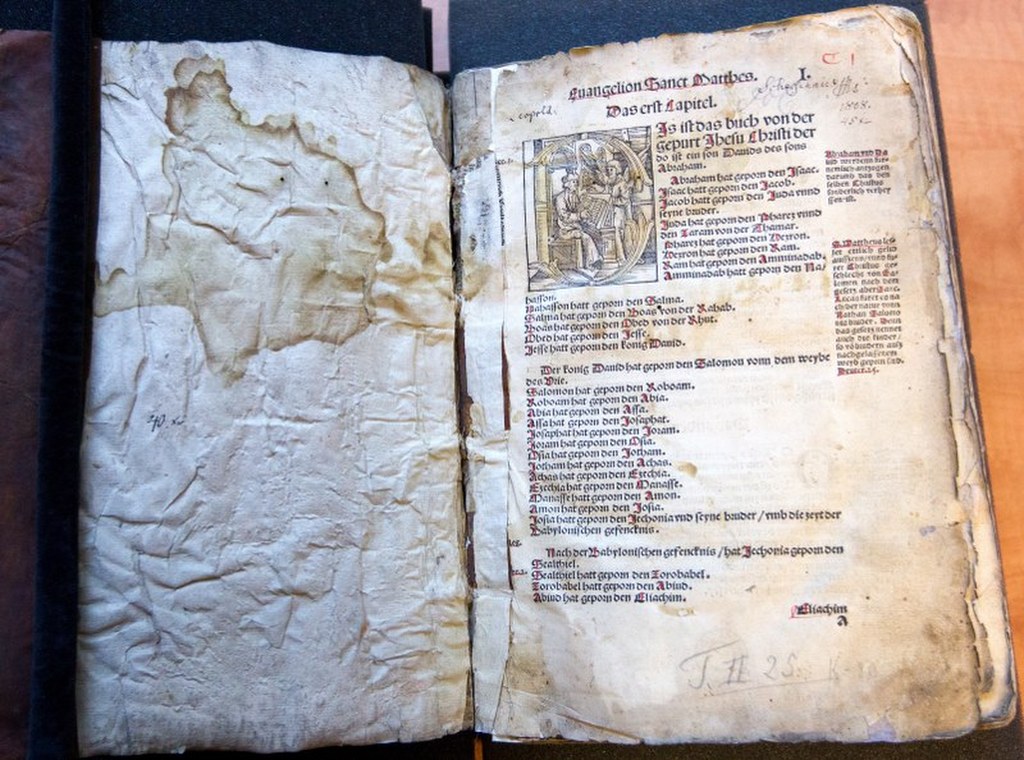 Euangelion Sanct Matthes. I.
Das erst Capitel.
Is ist das buch von der
gepurt Jhesu Christi der
do ist ein son Dauids des sons
Abraham.
Abraham hat geporn den Isaac.
Isaac hatt geporn den Jacob.
Jacob hatt geporn den Juda vnnd
seyne bruder.
Juda hat geporn den Pharez vnnd
den Zaram von der Thamar.
Pharez hat geporn den Hezron.
Hezron hat geporn den Ram.
Ram hat geporn den Amminadab.
Amminadab hatt geporn den Na/
hasson.
Nahasson hatt geporn den Salma.
Salma hat geporn den Boas von der Rahab.
Boas hatt geporn den Obed von der Rhut.
Obed hat geporn den Jesse.
Jesse hatt geporn den konig Dauid.
Der konig Dauid hat geporn den Salomon vonn dem weybe
des Vrie.
Salomon hat geporn den Roboam.
Roboam hat geporn den Abia.
Abia hat geporn den Assa.
Assa hat geporn den Josaphat.
Josaphat hat geporn den Joram.
Joram hat geporn den Osia.
Osia hat geporn den Jotham.
Jotham hat geporn den Achas.
Achas hat geporn den Ezechia.
Ezechia hat geporn den Manasse.
Manasse hatt geporn den Amon.
Amon hat geporn den Josia.
Josia hatt geporn den Jechonia vnd seyne bruder / vmb die zeyt der
Babylonischen gefencknis.
Nach der Babylonischen gefencknis / hat Jechonia geporn den
Sealthiel.
Sealthiel hatt geporn den Zorobabel.
Zorobabel hatt geporn den Abiud.
Abiud hat geporn den Eliachim.
Eliachim
A
Abraham vnd Da
uid werden fur-
nemlich antzogen
darumb das den
selben Christus
sonderlich verhey
sen ist.
S. Mattheus les
Christus ge
schlecht von Sa-
lomon nach dem
gesetz aber Sanc.
Lucas furet es na
ch der natur vonn
Nathan Salomo
nis bruder. Denn
das gesetz nennet
auch die kinder/
so vo brudern auß
nachgelassenem
weyb geporn sind.
Deutr. 25.
J. II 25.